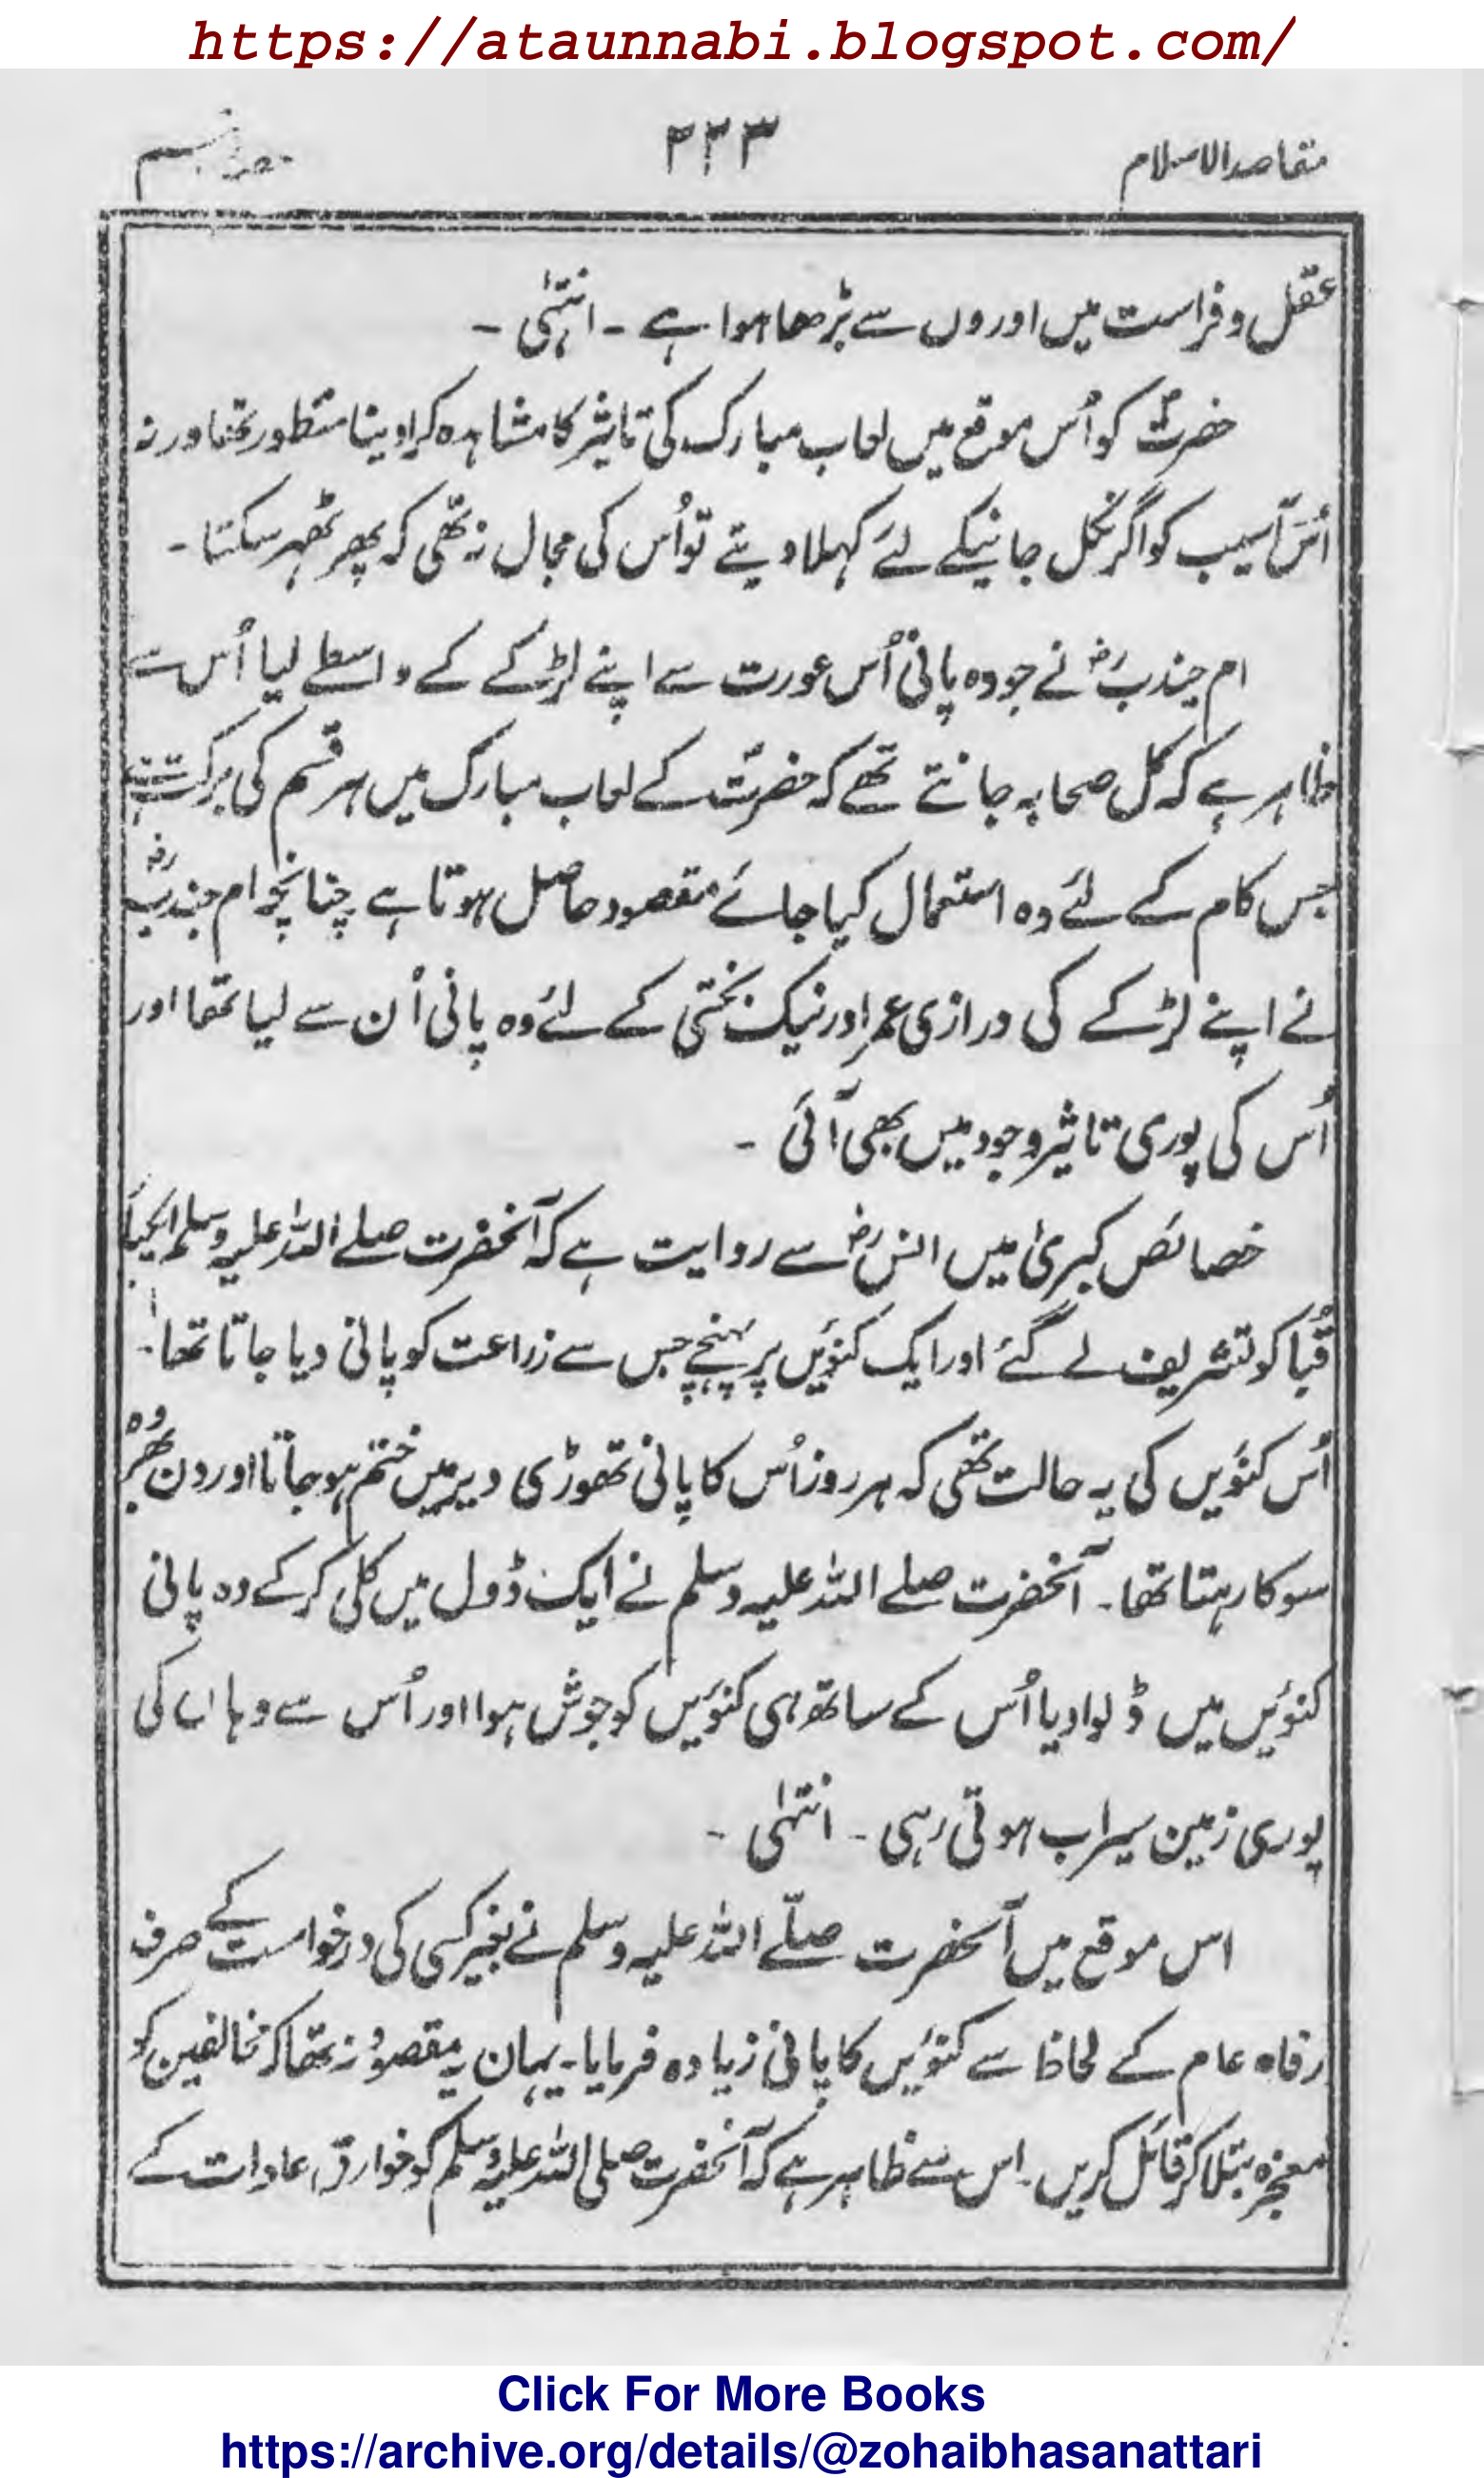 https://ataunnabi.blogspot.com/
مقاصد الاسلام ۲۳۳ حصہ
عقل و فراست میں اوروں سے بڑھا ہوا ہے ۔ انتہٰی ۔
حضرتؐ کو اُس موقع میں لعاب مبارک کی تاثیر کا مشاہدہ کرا دینا منظور تھا ورنہ
اُس آسیب کو اگر نکل جانیکے لئے کہلا دیتے تو اُس کی مجال نہ تھی کہ پھر ٹھہر سکتا ۔
ام جندبؓ نے جو وہ پانی اُس عورت سے اپنے لڑکے کے واسطے لیا اُس سے
ظاہر ہے کہ کل صحابہ جانتے تھے کہ حضرتؐ کے لعاب مبارک میں ہر قسم کی برکت ہے
جس کام کے لئے وہ استعمال کیا جائے مقصود حاصل ہوتا ہے چنانچہ ام جندبؓ
نے اپنے لڑکے کی درازی عمر اور نیک بختی کے لئے وہ پانی اُن سے لیا تھا اور
اُس کی پوری تاثیر وجود میں بھی آئی ۔
خصائص کبریٰ میں انسؓ سے روایت ہے کہ آنحضرت صلے اللہ علیہ وسلم ایکبار
قُبا کو تشریف لے گئے اور ایک کنوئیں پر پہنچے جس سے زراعت کو پانی دیا جاتا تھا ۔
اُس کنوئیں کی یہ حالت تھی کہ ہر روز اُس کا پانی تھوڑی دیر میں ختم ہو جاتا اور دن بھر وہ
سوکا رہتا تھا ۔ آنحضرت صلے اللہ علیہ وسلم نے ایک ڈول میں کلی کر کے وہ پانی
کنوئیں میں ڈلوا دیا اُس کے ساتھ ہی کنوئیں کو جوش ہوا اور اُس سے وہاں کی
پوری زمین سیراب ہوتی رہی ۔ انتہٰی ۔
اس موقع میں آنحضرت صلّے اللہ علیہ وسلم نے بغیر کسی کی درخواست کے صرف
رفاہ عام کے لحاظ سے کنوئیں کا پانی زیادہ فرمایا ۔ یہان یہ مقصود نہ تھا کہ مخالفین کو
معجزہ بتلا کر قائل کریں ۔ اس سے ظاہر ہے کہ آنحضرت صلی اللہ علیہ وسلم کو خوارق عادات کے
Click For More Books
https://archive.org/details/@zohaibhasanattari